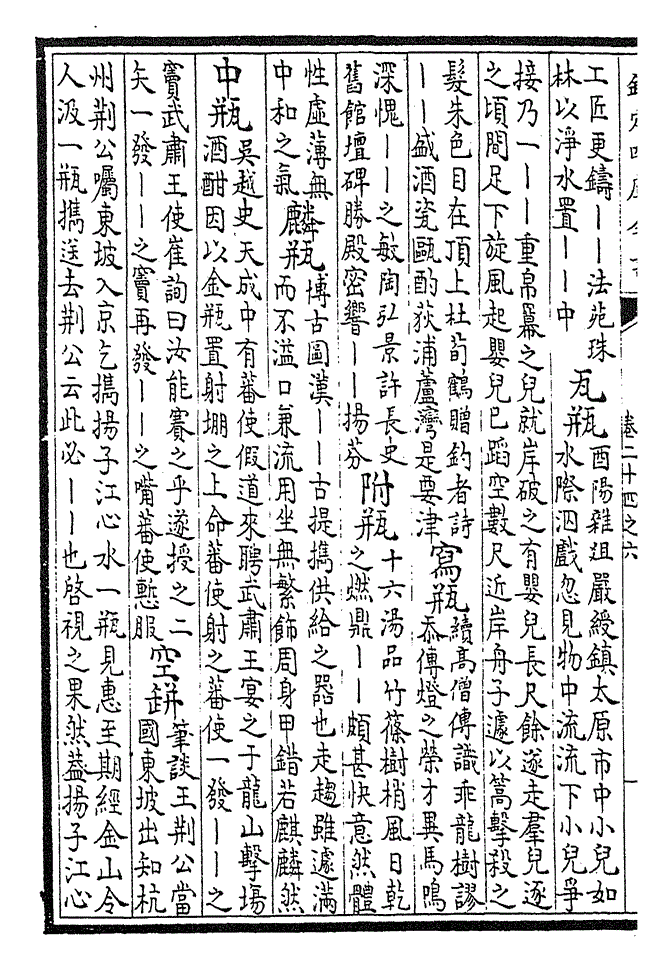 欽定四庫全書
卷二十四之六
工匠更鑄丨丨法苑珠
林以淨水置丨丨中
瓦瓶
酉陽雜俎嚴綬鎮太原市中小兒如
水際泅戲忽見物中流流下小兒爭
接乃一丨丨重帛羃之兒就岸破之有嬰兒長尺餘遂走羣兒逐
之頃間足下旋風起嬰兒已蹈空數尺近岸舟子遽以篙擊殺之
髮朱色目在頂上杜荀鶴贈釣者詩
丨丨盛酒瓷甌酌荻浦蘆灣是要津
寫瓶
續高僧傳識乖龍樹謬
忝傳燈之榮才異馬鳴
深愧丨丨之敏陶弘景許長史
舊館壇碑勝殿密響丨丨揚芬
附瓶
十六湯品竹篠樹梢風日乾
之燃鼎丨丨頗甚快意然體
性虛薄無
中和之氣
麟瓶
博古圖漢丨丨古提攜供給之器也走趨雖遽滿
而不溢口兼流用坐無繁飾周身甲錯若麒麟然
中瓶
吳越史天成中有蕃使假道來聘武肅王宴之于龍山擊場
酒酣因以金瓶置射堋之上命蕃使射之蕃使一發丨丨之
竇武肅王使崔詢曰汝能賽之乎遂授之二
矢一發丨丨之竇再發丨丨之嘴蕃使慙服
空缾
筆談王荆公當
國東坡出知杭
州荆公囑東坡入京乞攜揚子江心水一瓶見惠至期經金山令
人汲一瓶攜送去荆公云此必丨丨也啓視之果然葢揚子江心